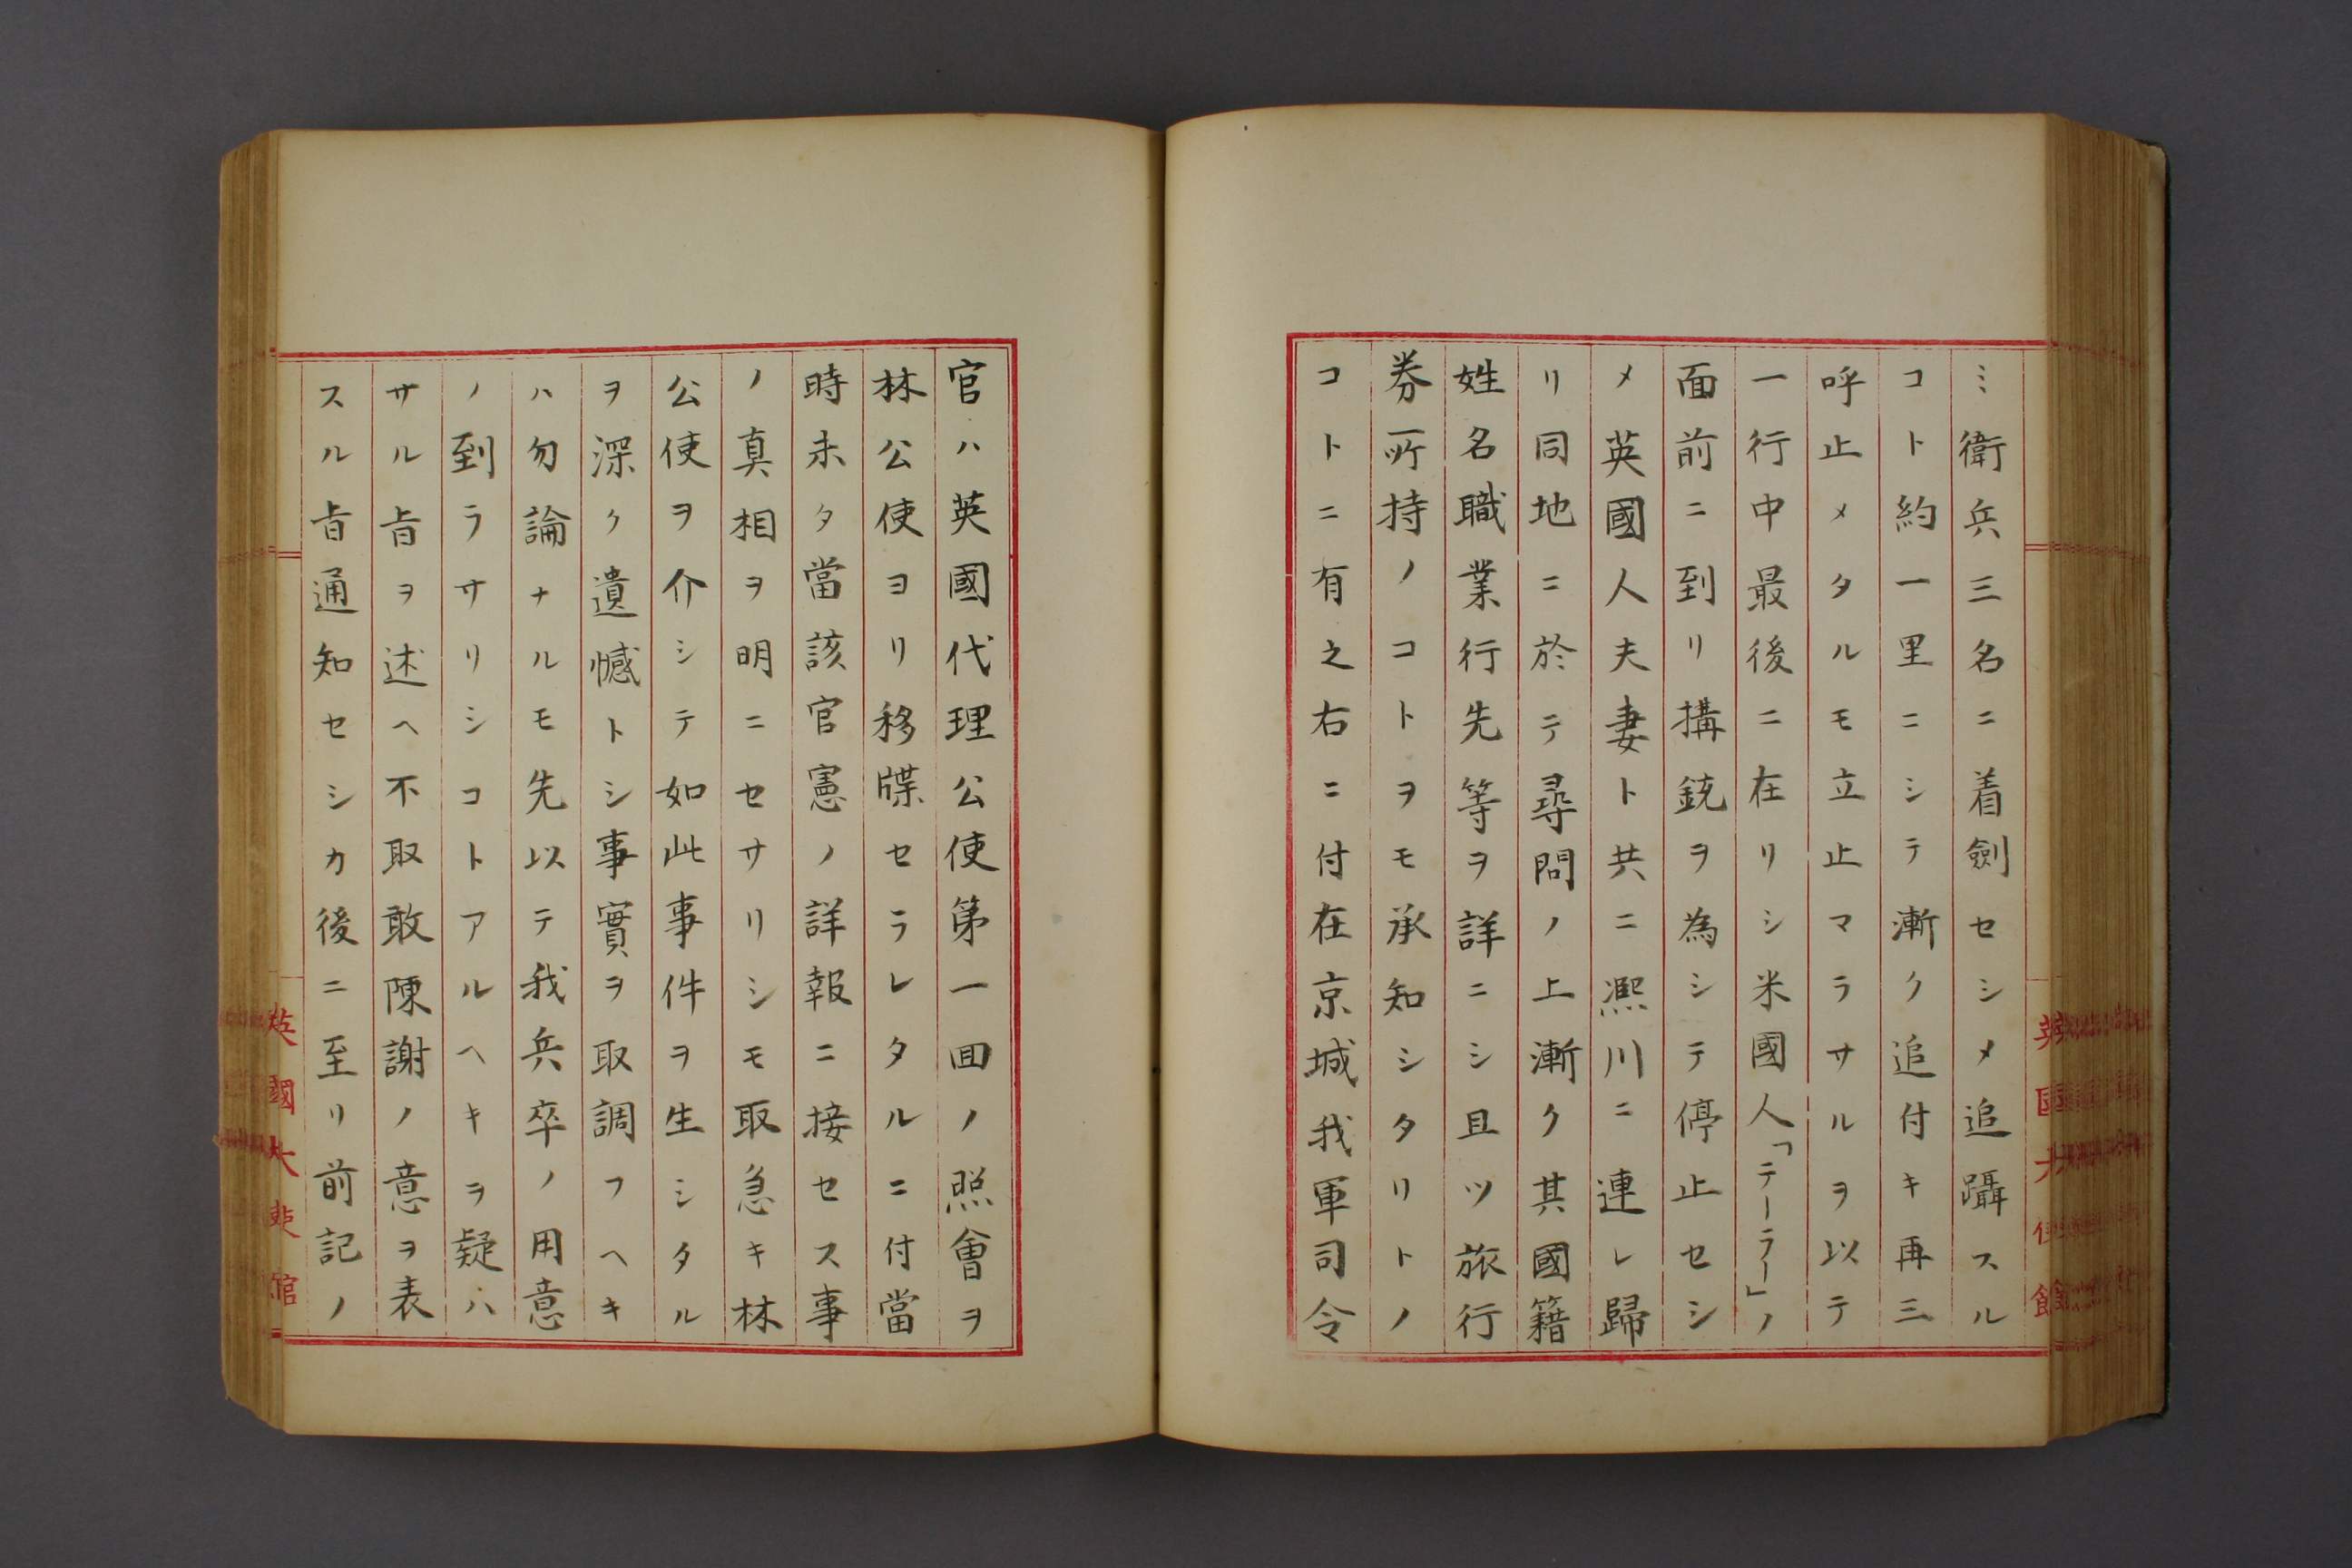 ミ衛兵三名ニ着劍セシメ追躡スル
コト約一里ニシテ漸ク追付キ再三
呼止メタルモ立止マラサルヲ以テ
一行中最後ニ在リシ米國人「テーラー」ノ
面前ニ到リ搆銃ヲ為シテ停止セシ
メ英國人夫妻ト共ニ凞川ニ連レ歸
リ同地ニ於テ尋問ノ上漸ク其國籍
姓名職業行先等ヲ詳ニシ且ツ旅行
券所持ノコトヲモ承知シタリトノ
コトニ有之右ニ付在京城我軍司令
官ハ英國代理公使第一回ノ照會ヲ
林公使ヨリ移牒セラレタルニ付當
時未タ當該官憲ノ詳報ニ接セス事
ノ真相ヲ明ニセサリシモ取急キ林
公使ヲ介シテ如此事件ヲ生シタル
ヲ深ク遺憾トシ事實ヲ取調フヘキ
ハ勿論ナルモ先以テ我兵卒ノ用意
ノ到ラサリシコトアルヘキヲ疑ハ
サル旨ヲ述ヘ不取敢陳謝ノ意ヲ表
スル旨通知セシカ後ニ至リ前記ノ
英國大使館